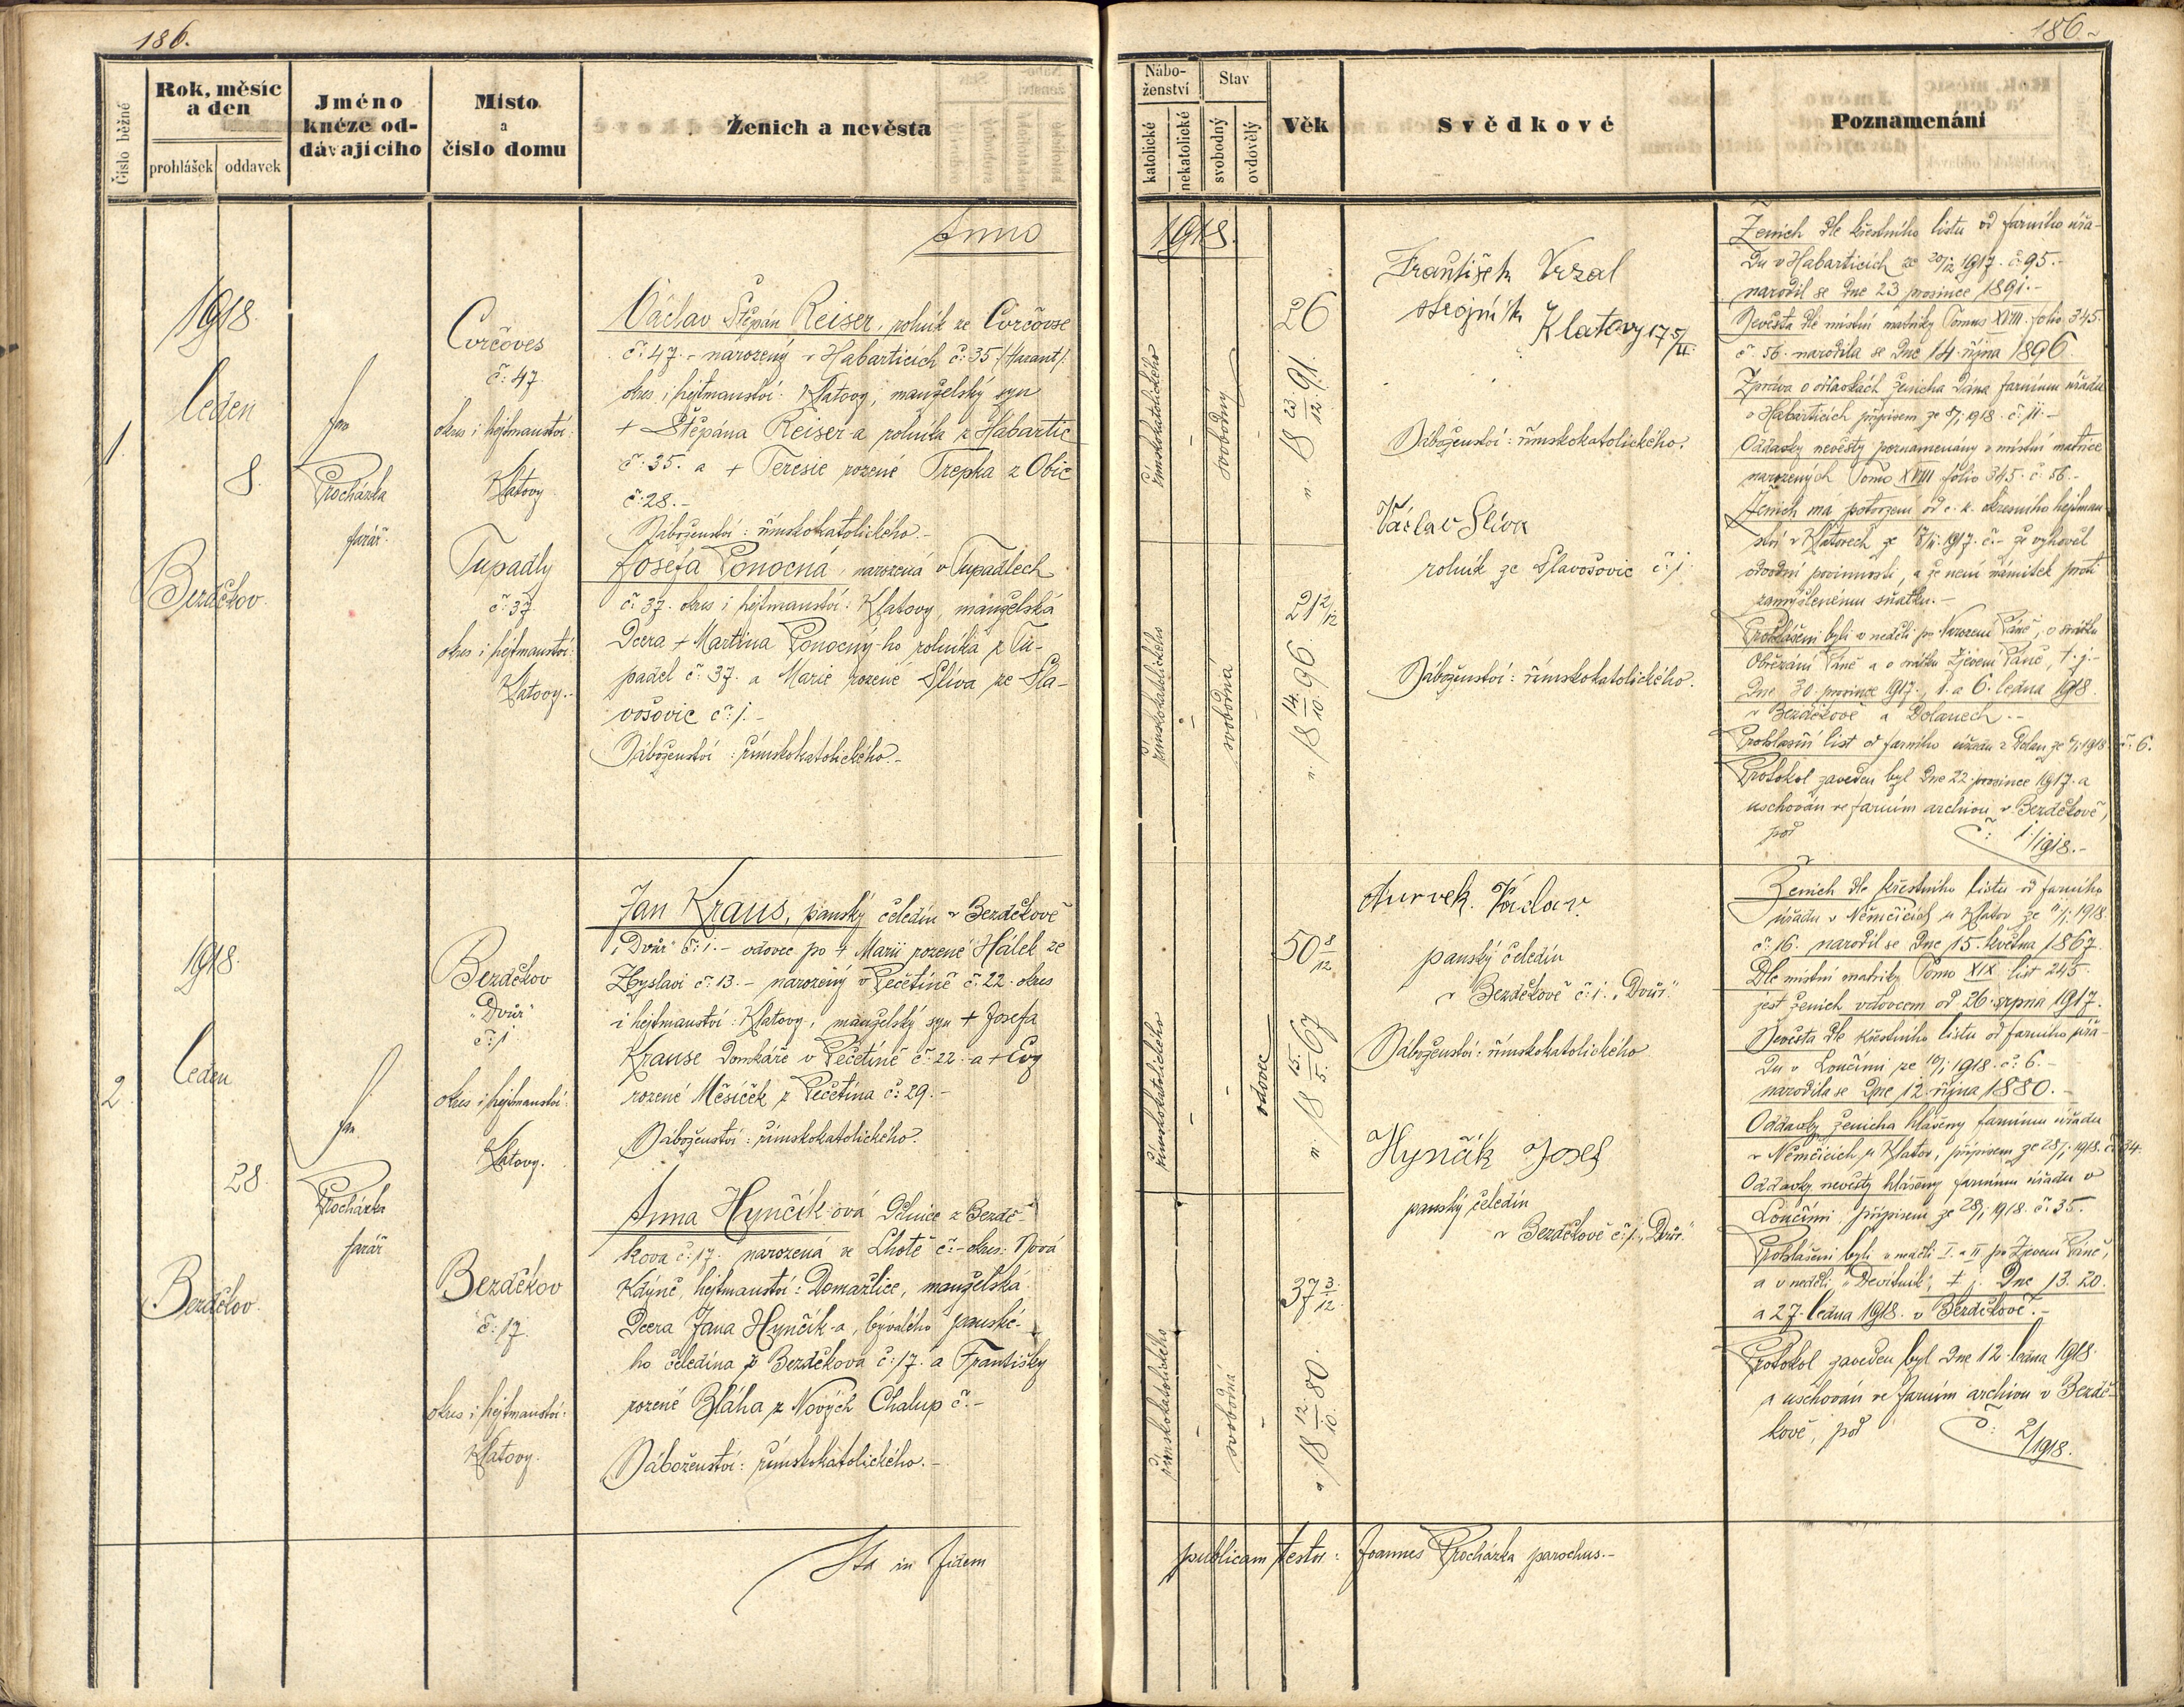 186.
Číslo běžné
Rok, měsíc
a den
prohlášek oddavek
Jméno
knéze od-
dávajícího
Místo
a
číslo domu
Ženich a nevěsta
Anno
1
1918.
leden
8.
Bezděkov.
Jan
Procházka
farář.
Cvrčoves
č: 47
okres i hejtmanství:
Klatovy
Tupadly
č: 37
okres i hejtmanství:
Klatovy.-
Václav Štěpán Reiser, rolník ze Cvrčovse
č: 47. - narozený v Habarticích č: 35 (Harant).
okres i hejtmanství: Klatovy, manželský syn
+ Štěpána Reiser-a rolníka z Habartic
č: 35. a + Teresie rozené Trepka z Obic
č: 28.-
Náboženství: římskokatolického.-
Josefa Ponocná, narozená v Tupadlech
č: 37. okres i hejtmanství: Klatovy, manželská
dcera + Martina Ponocný-ho rolníka z Tu-
padel č: 37. a Marie rozené Slíva ze Sla-
vošovic č: 1.-
Náboženství: římskokatolického.-
2
1918.
leden
28.
Bezděkov.
Jan
Procházka
farář
Bezděkov
"Dvůr"
č: 1
okres i hejtmanství:
Klatovy.
Bezděkov
č: 17.
okres i hejtmanství:
Klatovy.
Jan Kraus, panský čeledín v Bezděkově
"Dvůr" č: 1.- vdovec po + Marii rozené Hálek ze
Zbyslavi č: 13.- narozený v Pečetíně č: 22. okres
i hejtmanství: Klatovy, manželský syn + Josefa
Krause domkáře v Pečetíně č: 22. a + Evy
rozené Měsíček z Pečetína č: 29.-
Náboženství: římskokatolického.
Anna Hynčík-ová dělnice z Bezdě-
kova č: 17. narozená ve Lhotě č:- okres: Nová
Kdýně, hejtmanství: Domažlice, manželská
dcera Jana Hynčík-a, bývalého panské-
ho čeledína z Bezděkova č: 17. a Františky
rozené Bláha z Nových Chalup č:-
Náboženství: římskokatolického.-
Ita in fidem
186.
Nábo-
ženství
katolické
nekatolické
Stav
svobodný
ovdovělý
Věk
Svědkové
Poznamenání
1918.
římskokatolického
-
svobodný
-
26
n. 18 23/12 91.
římskokatolického
-
svobodná
-
21 2/12
n. 18 14./10. 96
František Vrzal
strojník
Klatovy 175/II.
Náboženství: římskokatolického.
Václav Slíva
rolník ze Slavošovic č: 1
Náboženství: římskokatolického.
Ženich dle křestního listu od farního úřa-
du v Habarticích ze 20/12 1917. č: 95.-
narodil se dne 23 prosince 1891.-
Nevěsta dle místní matriky Tomus XVIII. folio 345.
č: 56. narodila se dne 14. října 1896.
Zpráva o oddavkách ženicha dána farnímu úřadu
v Habarticích přípisem ze 8/1. 1918. č: 11.-
Oddavky nevěsty poznamenány v místní matrice
narozených Tomo XVIII folio 345. č: 56.-
Ženich má potvrzení od c. k. okresního hejtman-
ství v Klatovech ze 1917. č:- že vyhověl
odvodní povinnosti, a že není námitek proti
zamýšlenému sňatku.-
Prohlášeni byli v neděli po Narození Páně, o svátku
Obřezání Páně a o svátku Zjevení Páně, t. j.-
dne 30. prosince 1917., 1. a 6. ledna 1918
v Bezděkově a Dolanech.-
Prohlašní list od farního úřadu z Dolan ze 6/1 1918. č: 6.
Protokol zaveden byl dne 22. prosince 1917. a
uschován ve farním archivu v Bezděkově,
pod č: 1/1918.-
římskokatolického
-
-
vdovec
50 8/12
n: 18 15./5. 67
římskokatolického
-
svobodná
-
37 3/12
n 18 12./10. 80
Turvek. Václav.
panský čeledín
v Bezděkově č: 1. "Dvůr."
Náboženství: římskokatolického
Hynčík Josef
panský čeledín
v Bezděkově č: 1. "Dvůr."
Ženich dle křestního listu od farního
úřadu v Němčicích u Klatov ze 1918.
č: 16. narodil se dne 15. května 1867.
Dle místní matriky Tomo XIX list 245.
jest ženich vdovcem od 26. srpna 1917.
Nevěsta dle křestního listu od farního úřa-
du v Loučimi ze 10/1 1918. č: 6.-
narodila se dne 12. října 1880.-
Oddavky ženicha hlášeny farnímu úřadu
v Němčicích u Klatov, přípisem ze 28/1. 1918. č: 34.
Oddavky nevěsty hlášeny farnímu úřadu v
Loučimi přípisem ze 28/1 1918. č: 35.
Prohlášeni byli v neděli I. a II po Zjevení Páně,
a v neděli "Devítník", t. j. dne 13. 20.
a 27. ledna 1918. v Bezděkově.-
Protokol zaveden byl dne 12. ledna 1918.
a uschován ve farním archivu v Bezdě-
kově, pod č: 2/1918.
publicam testor: Joannes Procházka parochus.-